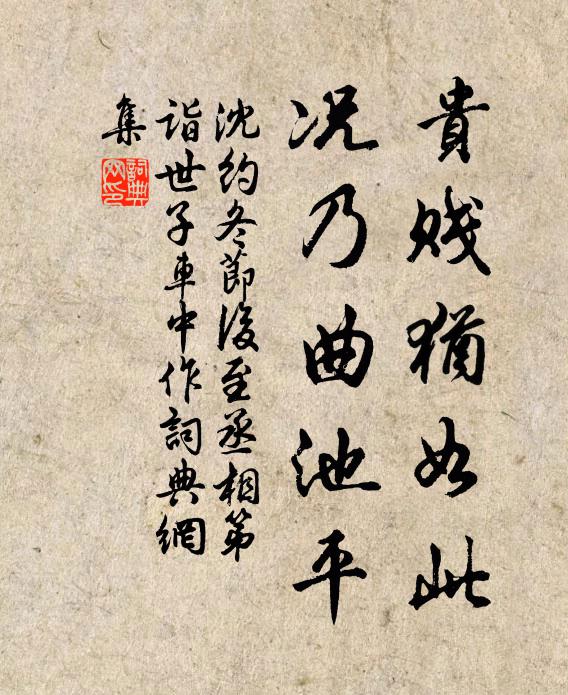 貴賤猶如此
況乃曲池平
沈約冬節後至丞相第
詣世子車中作詞典網
集
詞典
网印